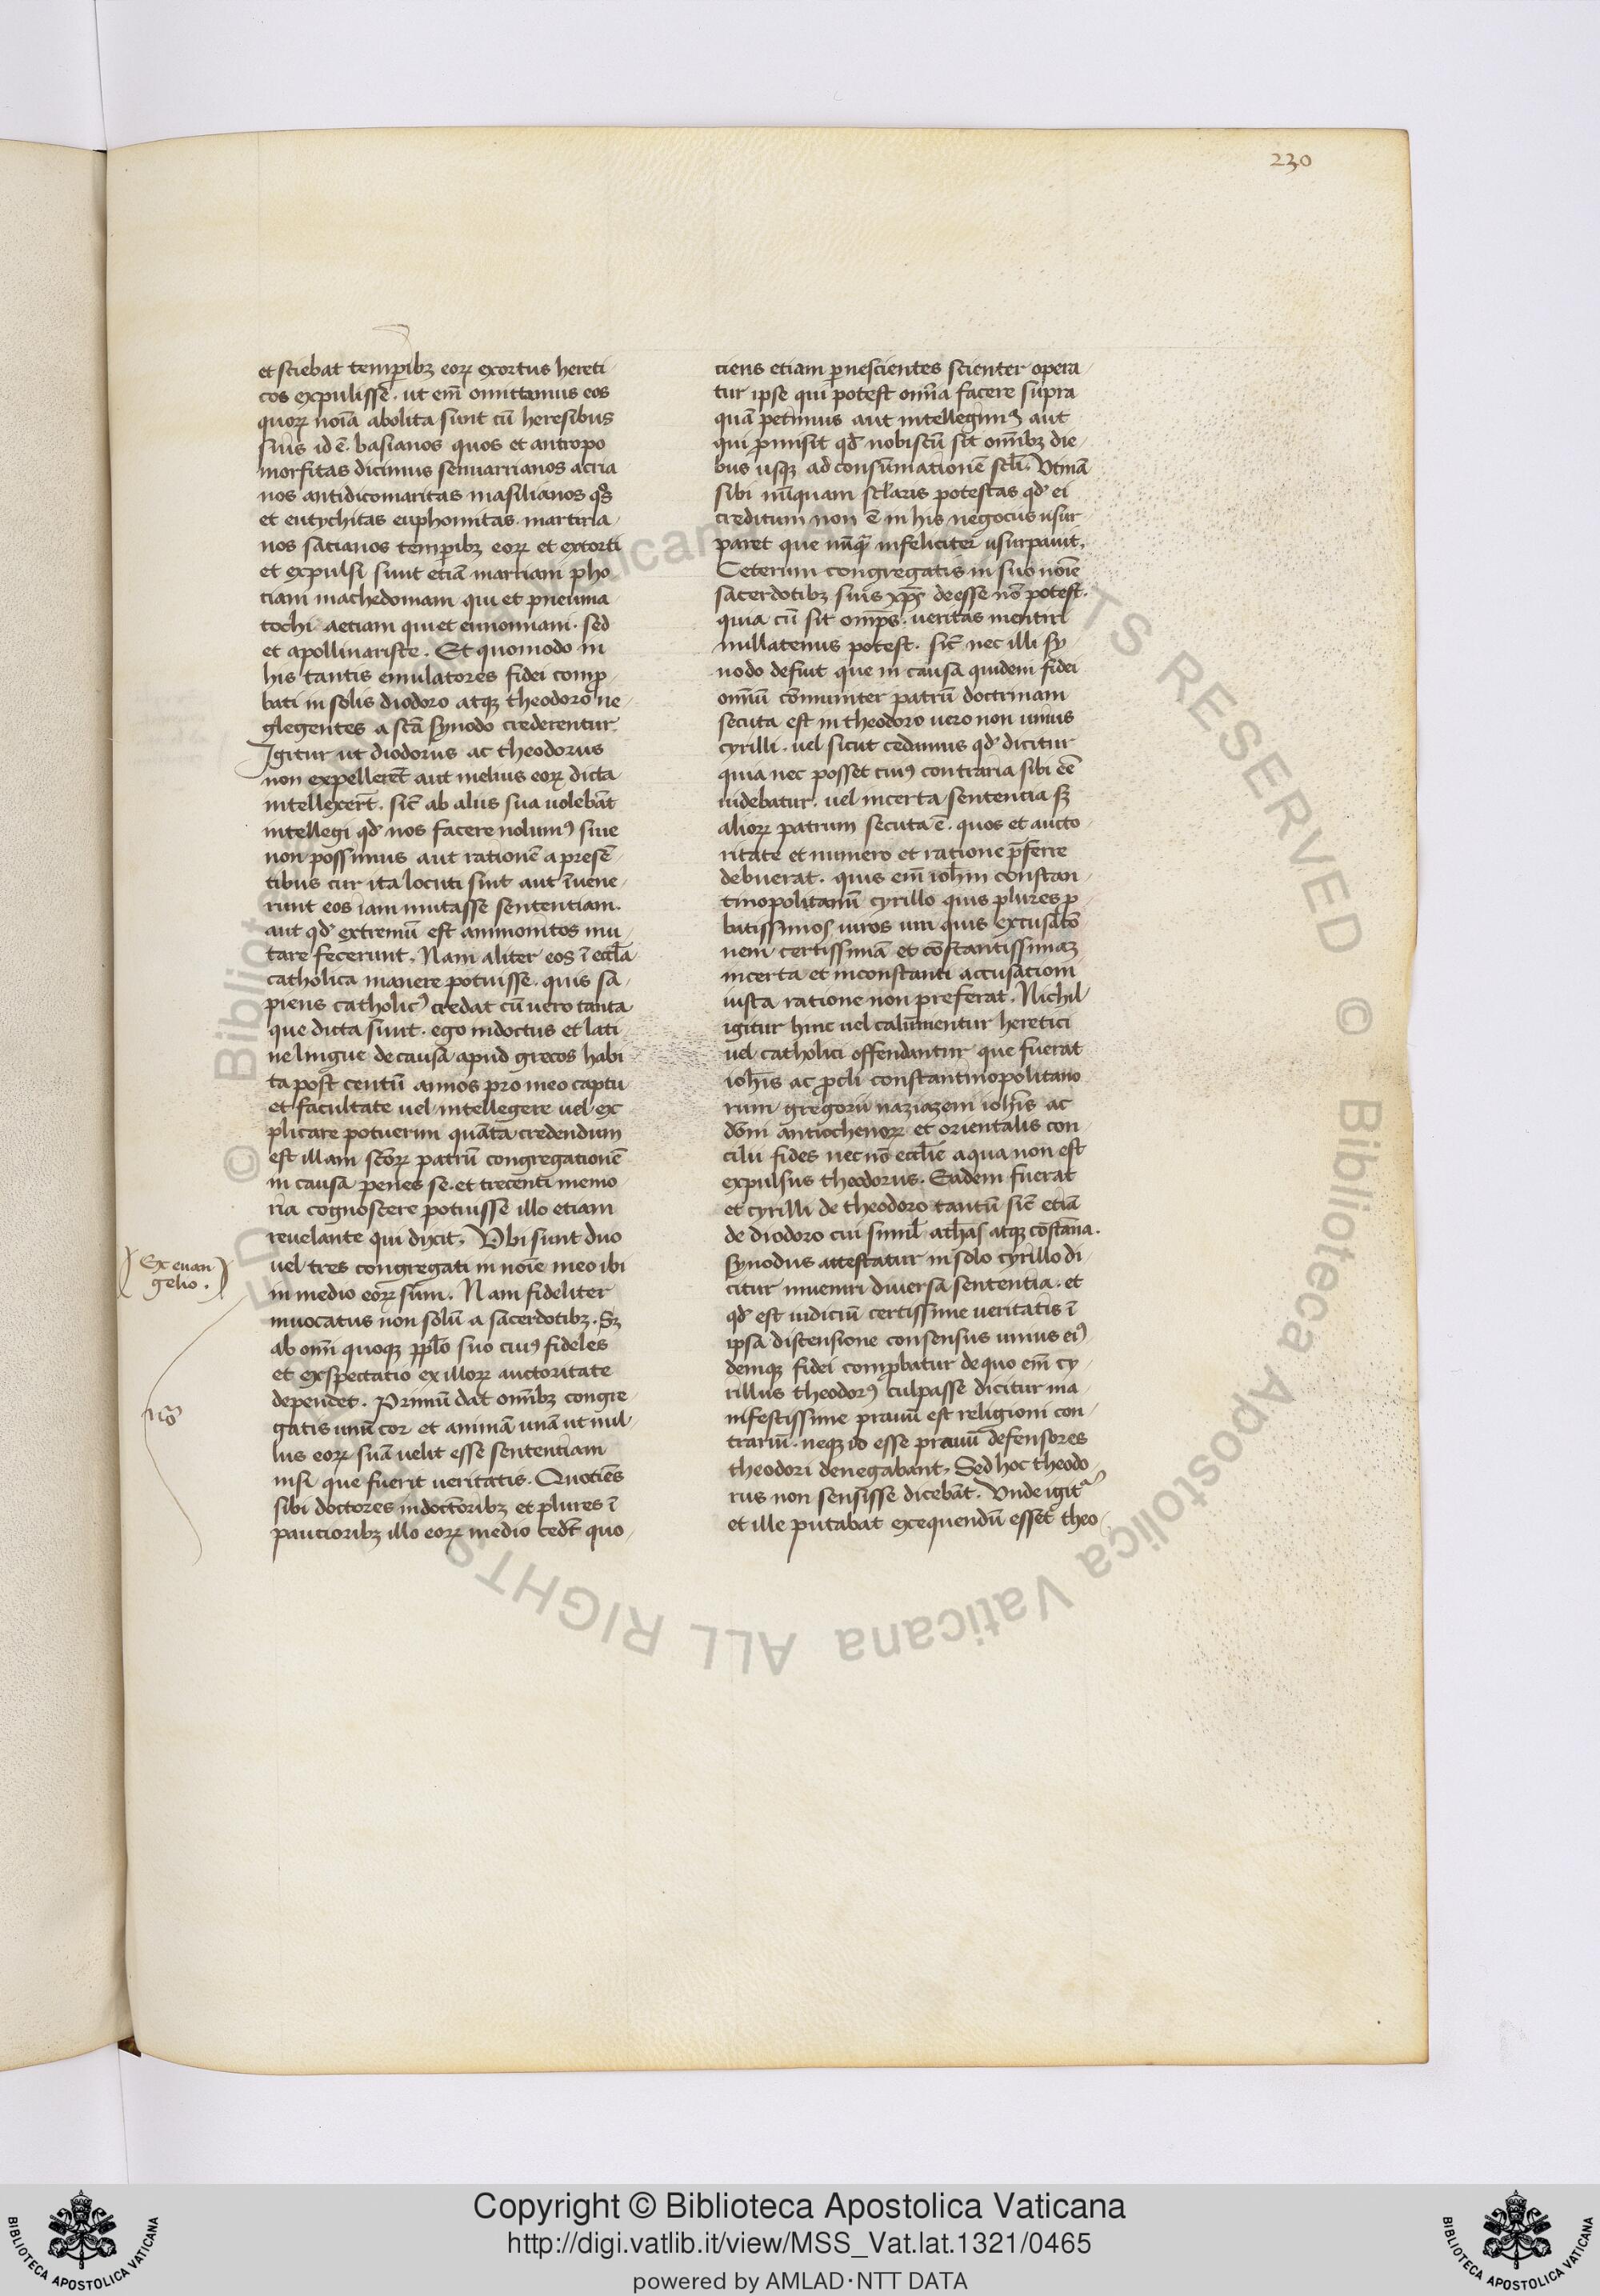 230
et sciebat temp̱ibꝫ eoꝝ exortus hereti
cos expulisse. ut em̄ omittamus eos
quoꝝ noīa abolita sunt cū heresibus
suis id ē. basianos quos et antropo
morfitas dicimus semiarrianos acria
nos antidicomaritas masilianos qͦs
et eutychitas euphomitas. martiria
nos satianos temp̱ibꝫ eoꝝ et extorti
et expulsi sunt etiā marriani pho
tiani machedoniani qui et pneuma
tochi. aetiani qui et eunomiani. sed
et apollinariste. Et quomodo in
his tantis emulatores fidei comꝓ
bati in solis diodoro atqꝫ theodoro ne
glegentes a scā synodo crederentur.
Igitur ut diodorus ac theodorus
non expellerēt aut melius eoꝝ dicta
intellexerūt. sic̄ ab aliis sua uolebāt
intellegi qd̓ nos facere nolumꝰ siue
non possimus aut rationē a presē
tibus cur ita locuti sint aut īuene
runt eos iam mutasse sententiam.
aut qd̓ extremū est ammonitos mu
tare fecerunt. Nam aliter eos ī eccl̄a
catholica manere potuisse. quis sa
piens catholicꝰ credat cū uero tanta
que dicta sunt. ego indoctus et lati
ne lingue de causa apud grecos habi
ta post centū annos pro meo captu
et facultate uel intellegere uel ex
plicare potuerim quāta credendum
est illam sctoꝝ patrū congregationē
in causa penes se. et trecenti memo
ria cognoscere potuisse illo etiam
reuelante qui dixit. Vbi sunt duo
uel tres congregati in noīe meo ibi
in medio eoꝝ sum. Nam fideliter
inuocatus non solū a sacerdotibꝫ. Sꝫ
ab omī quoqꝫ ppl̄o suo cuiꝰ fideles
et exspectatio ex illoꝝ auctoritate
dependet. Primū dat om̄ibꝫ congre
gatis unū cor et animā unā ut nul
lus eoꝝ suā uelit esse sententiam
nisi que fuerit ueritatis. Quotiēs
sibi doctores indoctoribꝫ et plures ī
paucioribꝫ illo eoꝝ medio cedt̄ quo
Ex euan
gelio.
ciens etiam p̱ nescientes scienter opera
tur ipse qui potest om̄ia facere supra
quā petimus aut intellegimꝰ aut
qui ꝓmisit qd̓ nobiscū sit om̄ibꝫ die
bus usqꝫ ad consūmationē scl̄i. Vtinā
sibi nūquam scl̄aris potestas qd̓ ei
creditum non ē in his negociis usur
paret que nūqꝫ infeliciter usurpauit.
Ceterum congregatis in suo noīe
sacerdotibꝫ suis xp̄s deesse nō potest.
quia cū sit omp̄s. ueritas mentiri
nullatenus potest. sic̄ nec illi sy
nodo defuit que in causa quidem fidei
omiū cōmuniter patrū doctrinam
secuta est in theodoro uero non unius
cyrilli. uel sicut cedimus qd̓ dicitur
quia nec posset cuiꝰ contraria sibi eē
uidebatur. uel incerta sententia sꝫ
alioꝝ patrum secuta ē. quos et aucto
ritate et numero et ratione p̄ferre
debuerat. quis em̄ ioh̄m constan
tinopolitanū cyrillo quis plures ꝓ
batissimos uiros uni quis excusatō
nem certissimā et cōstantissimaꝫ
incerta et inconstanti accusationi
iusta ratione non preferat. Nichil
igitur hinc uel calūmentur heretici
uel catholici offendantur que fuerat
ioh̄is ac ꝓcli constantinopolitano
rum gregorii naziazeni ioh̄is ac
dōni antiochenoꝝ et orientalis con
cilii fides necnō eccl̄ie a qua non est
expulsus theodorus. Eadem fuerat
et cyrilli de theodoro tantū sic̄ etiā
de diodoro cui simil̄ ath̄as atqꝫ cōstāna.
synodus attestatur in solo cyrillo di
citur inueniri diuersa sententia. et
qd̓ est iudiciū certissime ueritatis ī
ipsa discensione consensus unius eiꝰ
demqꝫ fidei comꝓbatur de quo em̄ cy
rillus theodorꝰ culpasse dicitur ma
nifestissime prauū est religioni con
trariū. neqꝫ io esse prauū defensores
theodori denegabant. Sed hoc theodo
rus non sensisse dicebāt. Vnde igitᷓ
et ille putabat exequendū esset theo
© Biblioteca Apostolica Vaticana ALL RIGHTS RESERVED © Biblioteca Apostolica Vaticana ALL RIGHTS RESERVED
BIBLIOTECA APOSTOLICA VATICANA
Copyright © Biblioteca Apostolica Vaticana
http://digi.vatlib.it/view/MSS_Vat.lat.1321/0465
powered by AMLAD·NTT DATA
BIBLIOTECA APOSTOLICA VATICANA